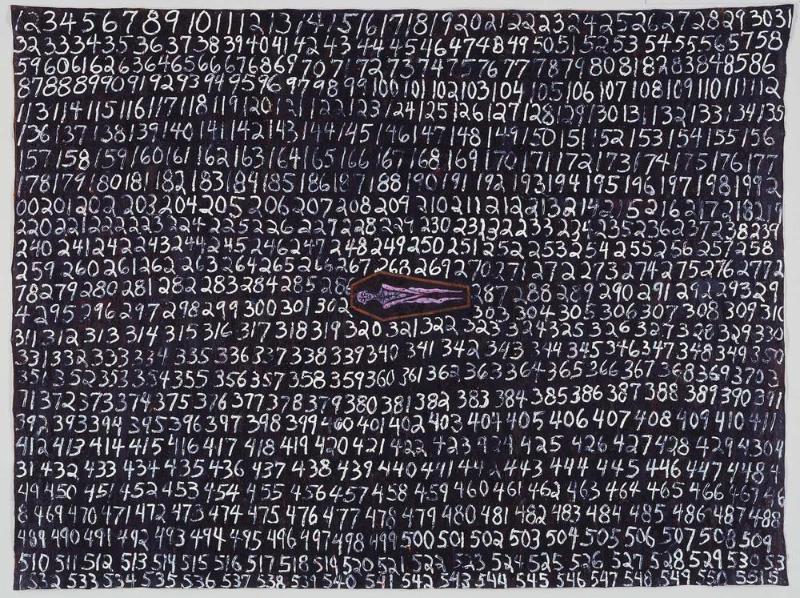 1 2 3 4 5 6 7 8 9 10 11 12 13 14 15 16 17 18 19 20 21 22 23 24 25 26 27 28 29 30 31
32 33 34 35 36 37 38 39 40 41 42 43 44 45 46 47 48 49 50 51 52 53 54 55 56 57 58
59 60 61 62 63 64 65 66 67 68 69 70 71 72 73 74 75 76 77 78 79 80 81 82 83 84 85 86
87 88 89 90 91 92 93 94 95 96 97 98 99 100 101 102 103 104 105 106 107 108 109 110 111 112
113 114 115 116 117 118 119 120 121 122 123 124 125 126 127 128 129 130 131 132 133 134 135
136 137 138 139 140 141 142 143 144 145 146 147 148 149 150 151 152 153 154 155 156
157 158 159 160 161 162 163 164 165 166 167 168 169 170 171 172 173 174 175 176 177
178 179 180 181 182 183 184 185 186 187 188 190 191 192 193 194 195 196 197 198 199 2
00 201 202 203 204 205 206 207 208 209 210 211 212 213 214 215 216 217 218 219
220 221 222 223 224 225 226 227 228 229 230 231 232 233 234 235 236 237 238 239
240 241 242 243 244 245 246 247 248 249 250 251 252 253 254 255 256 257 258
259 260 261 262 263 264 265 266 268 269 270 271 272 273 274 275 276 277 2
78 279 280 281 282 283 284 285 287 288 289 290 291 292 293 2
4 295 296 297 298 299 300 301 302 303 304 305 306 307 308 309 310
311 312 313 314 315 316 317 318 319 320 321 322 323 324 325 326 327 328 329 330
331 332 333 334 335 336 337 338 339 340 341 342 343 344 345 346 347 348 349 350
351 352 353 354 355 356 357 358 359 360 361 362 363 364 365 366 367 368 369 370 3
71 372 373 374 375 376 377 378 379 380 381 382 383 384 385 386 387 388 389 390 391
392 393 394 395 396 397 398 399 400 401 402 403 404 405 406 407 408 409 410 411
412 413 414 415 416 417 418 419 420 421 422 423 424 425 426 427 428 429 430 4
31 432 433 434 435 436 437 438 439 440 441 442 443 444 445 446 447 448 4
49 450 451 452 453 454 455 456 457 458 459 460 461 462 463 464 465 466 467 46
8 469 470 471 472 473 474 475 476 477 478 479 480 481 482 483 484 485 486 487 488
489 490 491 492 493 494 495 496 497 498 499 500 501 502 503 504 505 506 507 508 509
510 511 512 513 514 515 516 517 518 519 520 521 522 523 524 525 526 527 528 529 530
531 532 533 534 535 536 537 538 539 540 541 542 543 544 545 546 547 548 549 550 551 5